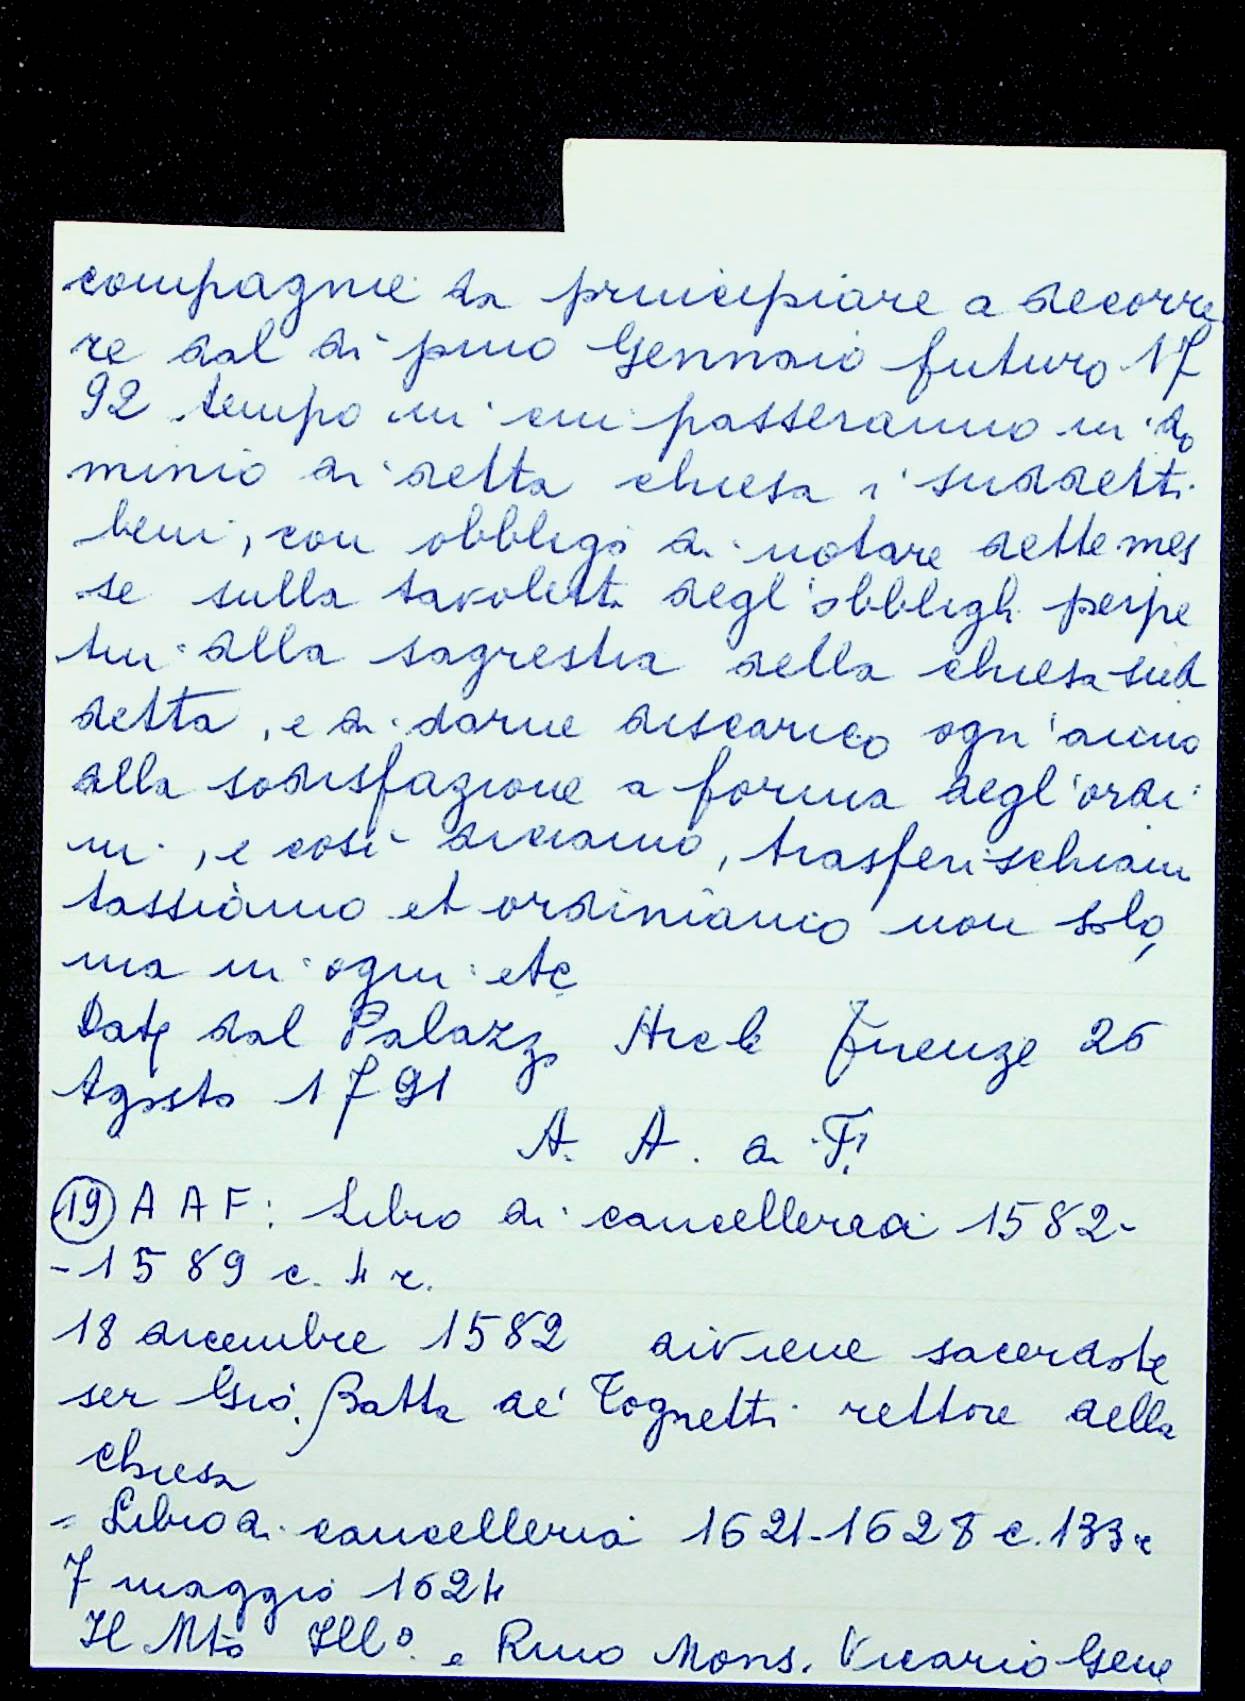 compagnie da principiare a decorre
re dal dì pmo Gennaio futuro 17
92 tempo in cui passeranno in do
minio di detta chiesa i suddetti
beni, con obbligo di notare dette mes
se sulla tavoletta degl'obblighi perpe
tui alla sagrestia della chiesa sud
detta, e di darne discarico ogn'anno
alla sodisfazione a forma degl'ordi
ni, e così diciamo, trasferischiamo
tassiamo et ordiniamo non solo,
ma in ogni etc
Dato dal Palazzo Arcle Firenze 26
Agosto 1791
A. A. di F.
19 A A F: Libro di cancelleria 1582-
-1589 c. 4 r.
18 dicembre 1582 diviene sacerdote
ser Gio. Batta de' Tognetti rettore della
chiesa
- Libro di cancelleria 1621-1628 c. 133r
7 maggio 1624
Il Mto Illo. e Rmo Mons. Vicario Gene